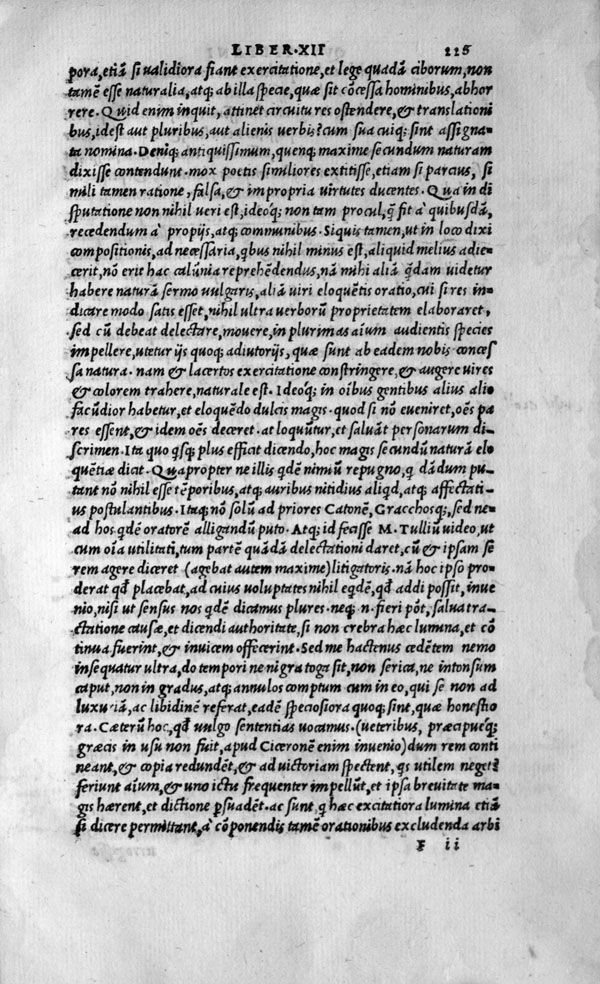 LIBER·XII 225
pora, etiã si validiora fiant exercitatione, et lege quadã ciborum, non
tamẽ esse naturalia, atq; ab illa specie, quæ sit cõcessa hominibus, abhor
rere. Quid enim inquit, attinet circuitu res ostendere, & translationi
bus, idest aut pluribus, aut alienis uerbis? cum sua cuiq; sint assigna-
ta nomina. Deniq; antiquissimum, quenq; maxime secundum naturam
dixisse contendunt. mox poetis similiores extitisse, etiam si parcius, si
mili tamen ratione, falsa, & impropria uirtutes ducentes. Qua in di
sputatione non nihil ueri est, ideoq; non tam procul, q̃ fit à quibusdã,
recedendum à proprijs, atq; communibus. Siquis tamen, ut in loco dixi
compositionis, ad necessaria, qbus nihil minus est, aliquid melius adie-
cerit, nõ erit hac calũnia reprehẽdendus, nã mihi aliã q̃dam uidetur
habere naturã sermo uulgaris, aliã uiri eloquẽtis oratio, cui si res in-
dicare modo satis esset, nihil ultra uerborũ proprietatem elaboraret,
sed cũ debeat delectare, mouere, in plurimas aĩum audientis species
impellere, utetur ijs quoq; adiutorijs, quæ sunt ab eadem nobis conces
sa natura. nam & lacertos exercitatione constringere, & augere uires
& colorem trahere, naturale est. Ideoq; in oibus gentibus alius alio
facũdior habetur, et eloquẽdo dulcis magis. quod si nõ eueniret, oẽs pa
res essent, & idem oẽs deceret. at loquũtur, et saluãt personarum di-
scrimen. Ita quo qsq; plus efficat dicendo, hoc magis secundũ naturã elo
quẽtiæ dicit. Quapropter ne illis qdẽ nimiũ repugno, q dãdum pu-
tant nõ nihil esse tẽporibus, atq; auribus nitidius aliqd, atq; affectati-
us postulantibus. Itaq; nõ solũ ad priores Catonẽ, Gracchosq;, sed ne-
ad hos qdẽ oratorẽ alligandũ puto. Atq; id fecisse M. Tulliũ uideo, ut
cum oĩa utilitati, tum partẽ quãdã delectationi daret, cũ & ipsam se
rem agere diceret (agebat autem maxime) litigatoris. nã hoc ipso pro-
derat qđ placebat, ad cuius uoluptates nihil eqdẽ, qđ addi possit, inue
nio, nisi ut sensus nos qdẽ dicamus plures. neq; n. fieri põt, salua tra-
ctatione causæ, et dicendi authoritate, si non crebra hæc lumina, et cõ
tinua fuerint, & inuicem offecerint. Sed me hactenus cedẽtem nemo
insequatur ultra, do tempori ne nigra toga sit, non serica, ne intonsum
caput, non in gradus, atq; annulos comptum cum in eo, qui se non ad
luxuriã, ac libidinẽ referat, eadẽ speciosiora quoq; sint, quæ honestio
ra. Cæterũ hoc, qđ uulgo sententias uocamus. (ueteribus, præcipueq;
græcis in usu non fuit, apud Ciceronẽ enim inuenio) dum rem conti
neant, & copia redundẽt, & ad uictoriam spectent, qs utilem neget?
feriunt aĩum, & uno ictu frequenter impellũt, et ipsa breuitate ma-
gis hærent, et dictione psuadẽt. ac sunt, q hæc excitatiora lumina etiã
si dicere permittant, à cõponendis tamẽ orationibus excludenda arbi
F ii